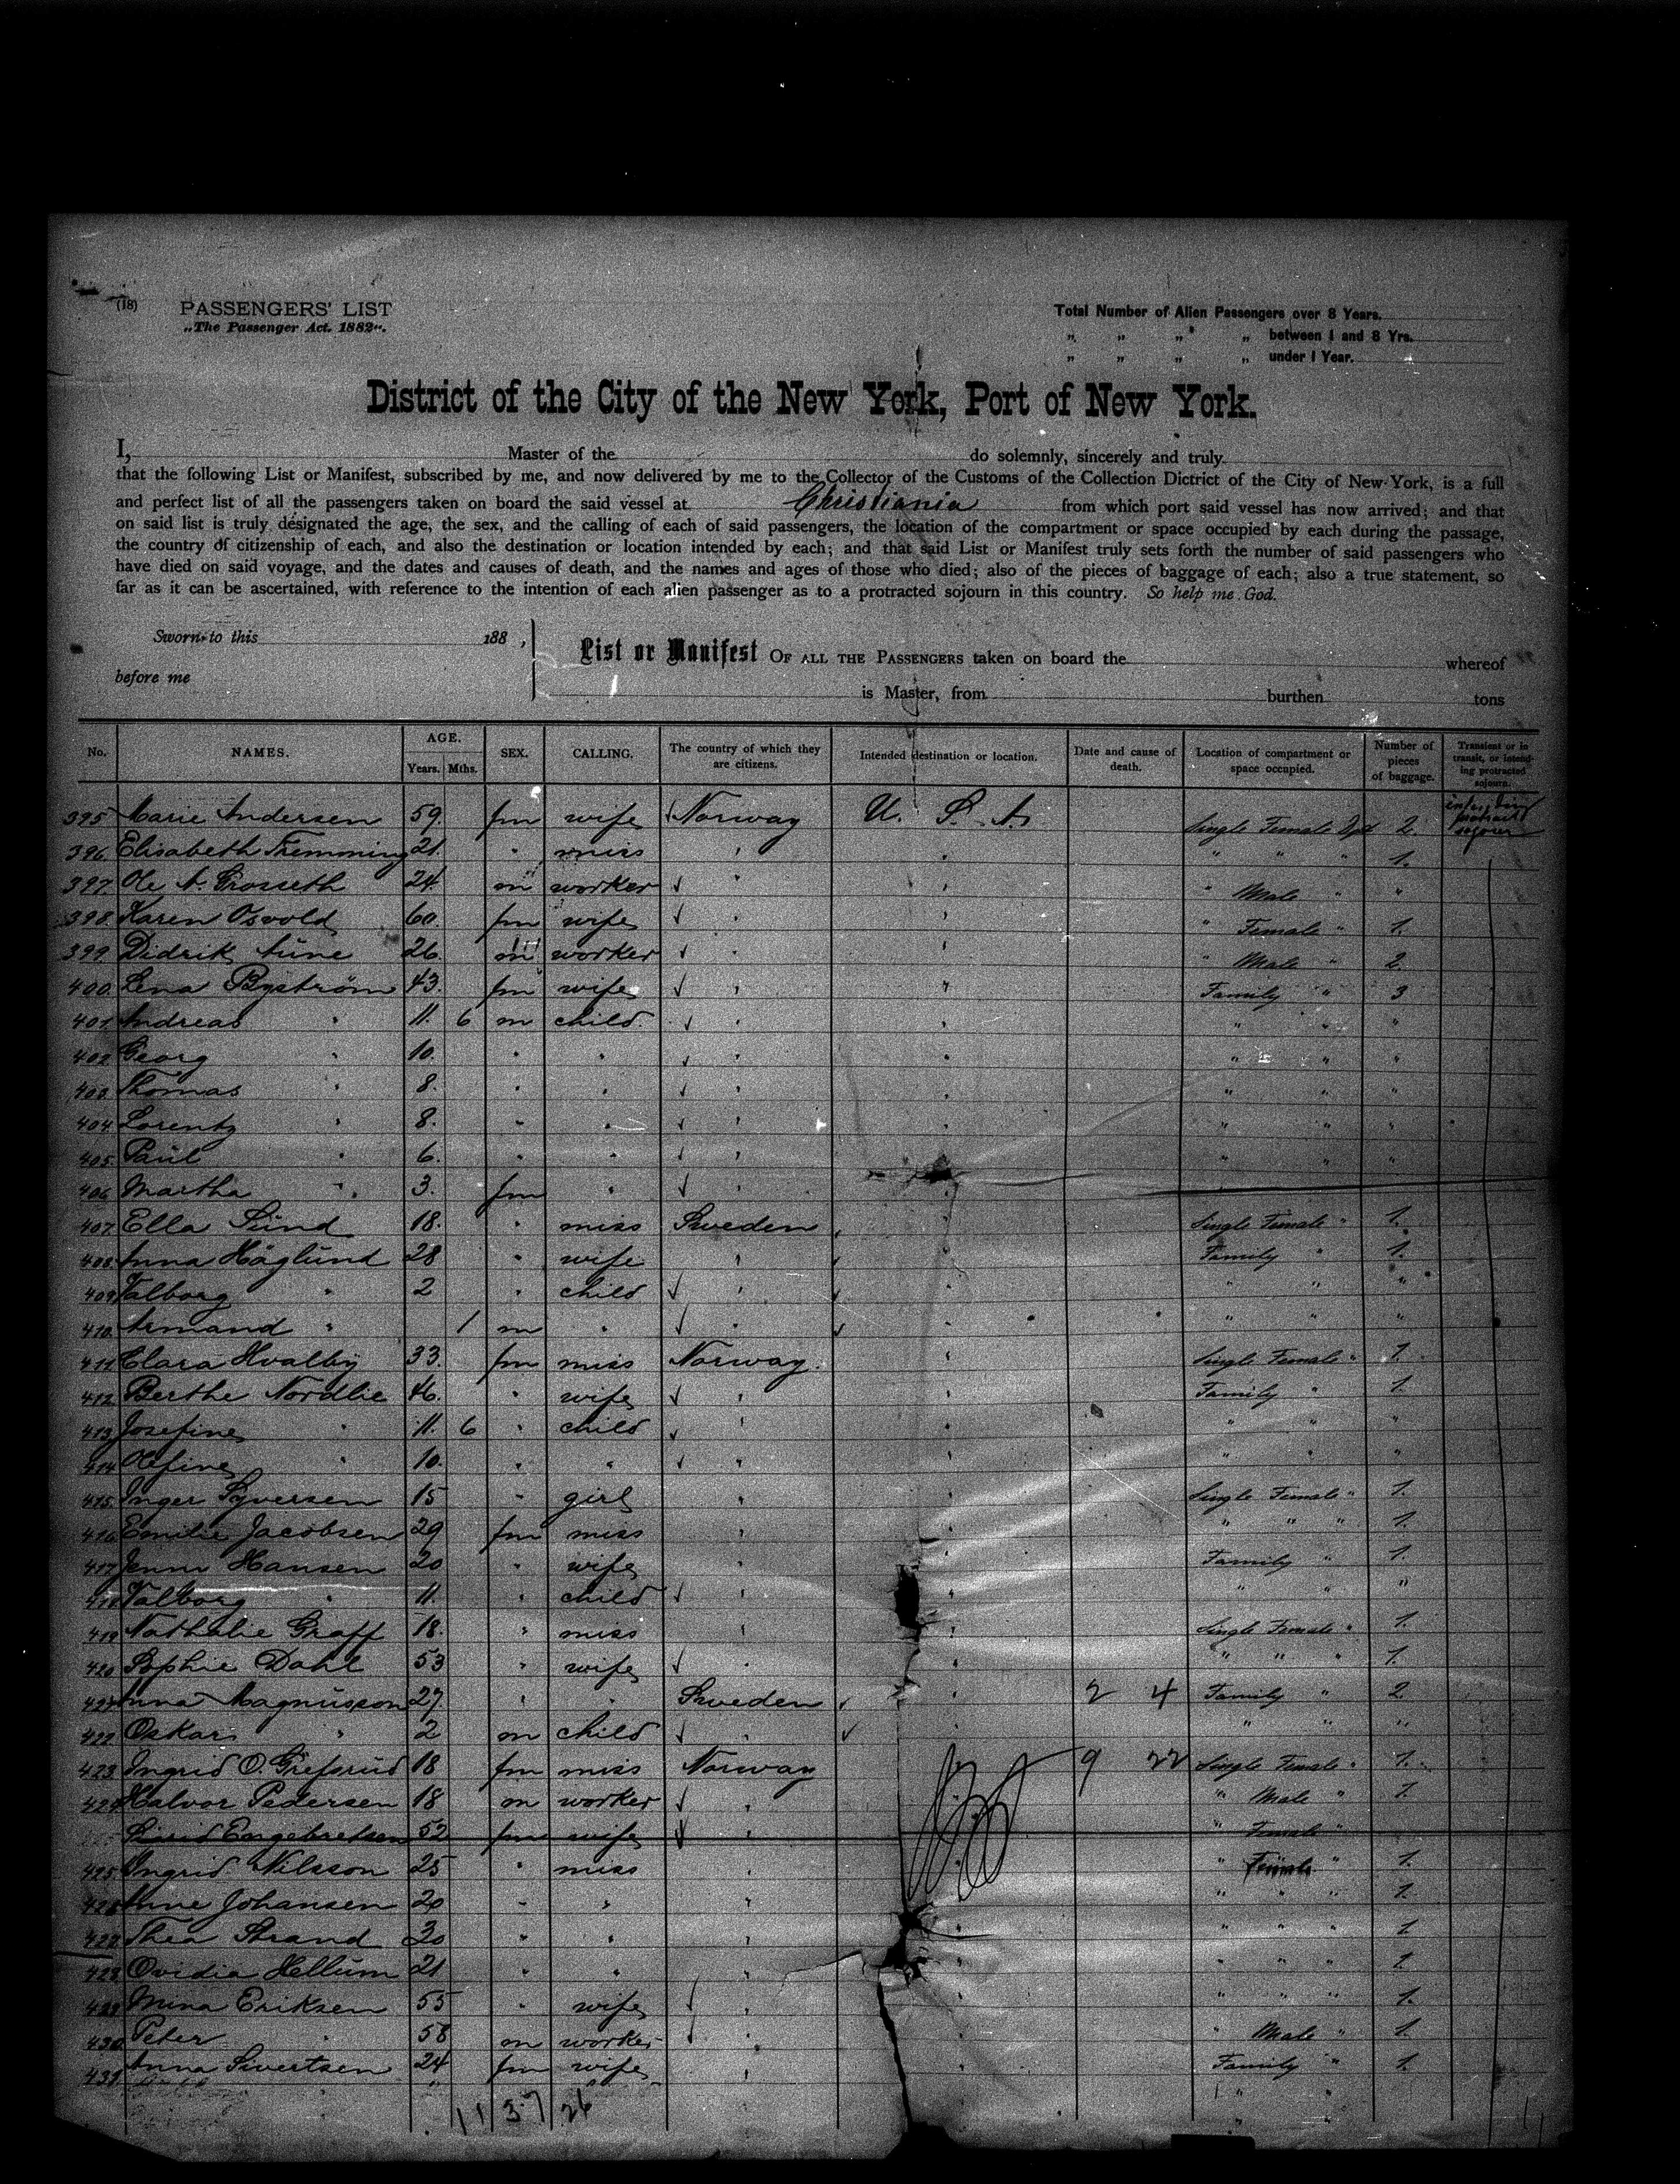 (18) PASSENGERS' LIST
„The Passenger Act. 1882".
Total Number of Alien Passengers over 8 Years.
„ „ „ „ between 1 and 8 Yrs.
„ „ „ „ under 1 Year.
District of the City of the New York, Port of New York.
I, Master of the do solemnly, sincerely and truly
that the following List or Manifest, subscribed by me, and now delivered by me to the Collector of the Customs of the Collection District of the City of New York, is a full
and perfect list of all the passengers taken on board the said vessel at Christiania from which port said vessel has now arrived; and that
on said list is truly designated the age, the sex, and the calling of each of said passengers, the location of the compartment or space occupied by each during the passage,
the country of citizenship of each, and also the destination or location intended by each; and that said List or Manifest truly sets forth the number of said passengers who
have died on said voyage, and the dates and causes of death, and the names and ages of those who died; also of the pieces of baggage of each; also a true statement, so
far as it can be ascertained, with reference to the intention of each alien passenger as to a protracted sojourn in this country. So help me God.
Sworn to this 188 ,
before me
List or Manifest OF ALL THE PASSENGERS taken on board the whereof
is Master, from burthen tons
No. NAMES. AGE. Years. Mths. SEX. CALLING. The country of which they are citizens. Intended destination or location. Date and cause of death. Location of compartment or space occupied. Number of pieces of baggage. Transient or in transit, or intending protracted sojourn.
395 Marie Andersen 59. fm wife Norway U. S. A. Single Female Dpt 2. intending protract sojourn
396. Elisabeth Fremming 21. " miss " " " " " 1.
397. Ole A. Grosseth 24. m worker " " " Male "
398. Karen Osvold 60. fm wife " " " Female " 1.
399. Didrik Aune 26. m worker " " " Male " 2.
400. Lena Byström 43. fm wife " " Family " 3
401. Andreas " 11. 6 m child. " " " " "
402. Georg " 10. " " " " " " "
403. Thomas " 8. " " " " " " "
404. Lorentz " 8. " " " " " " "
405. Paul " 6. " " " " " " "
406. Martha " 3. fm " " "
407. Ella Sund 18. " miss Sweden " Single Female " 1.
408. Anna Höglund 28 " wife " " Family " 1.
409. Valborg " 2 " child " " " " "
410. Armand " 1 m " " " " " "
411. Clara Hvalby 33. fm miss Norway. " Single Female " 1.
412. Berthe Nordlie 46. " wife " " Family " 1.
413. Josefine " 11. 6 " child " " " " "
414. Olefine " 10. " " " " " " "
415. Inger Syversen 15 " girl " " Single Female " 1.
416. Emilie Jacobsen 29 fm miss " " " " " 1.
417. Jenni Hansen 20 " wife " " Family " 1.
418. Valborg " 11. " child " " " " "
419. Nathalie Graff 18. " miss " " Single Female " 1.
420. Sophie Dahl 53 " wife " " " " " 1.
421. Anna Magnusson 27. " " Sweden " 2 4 Family " 2.
422. Oskar " 2 m child " " " " "
423. Ingrid O. Grefsrud 18 fm miss Norway 9 22 Single Female " 1.
424. Halvor Pedersen 18 m worker " " Male " 1.
Sigrid Engebretsen 52 fm wife " " Female "
425. Ingrid Nilsson 25 " miss " " Female " 1.
426. Anne Johansen 20 " " " " " " 1.
427. Thea Strand 20 " " " " " " " 1
428. Ovidia Hellum 21 " " " " " " " 1.
429. Mina Eriksen 55 " wife " " " " " 1.
430. Peter " 58 m worker " " " Male " 1.
431. Anna Sivertsen 24 fm wife " " Family " 1.
11 37 26